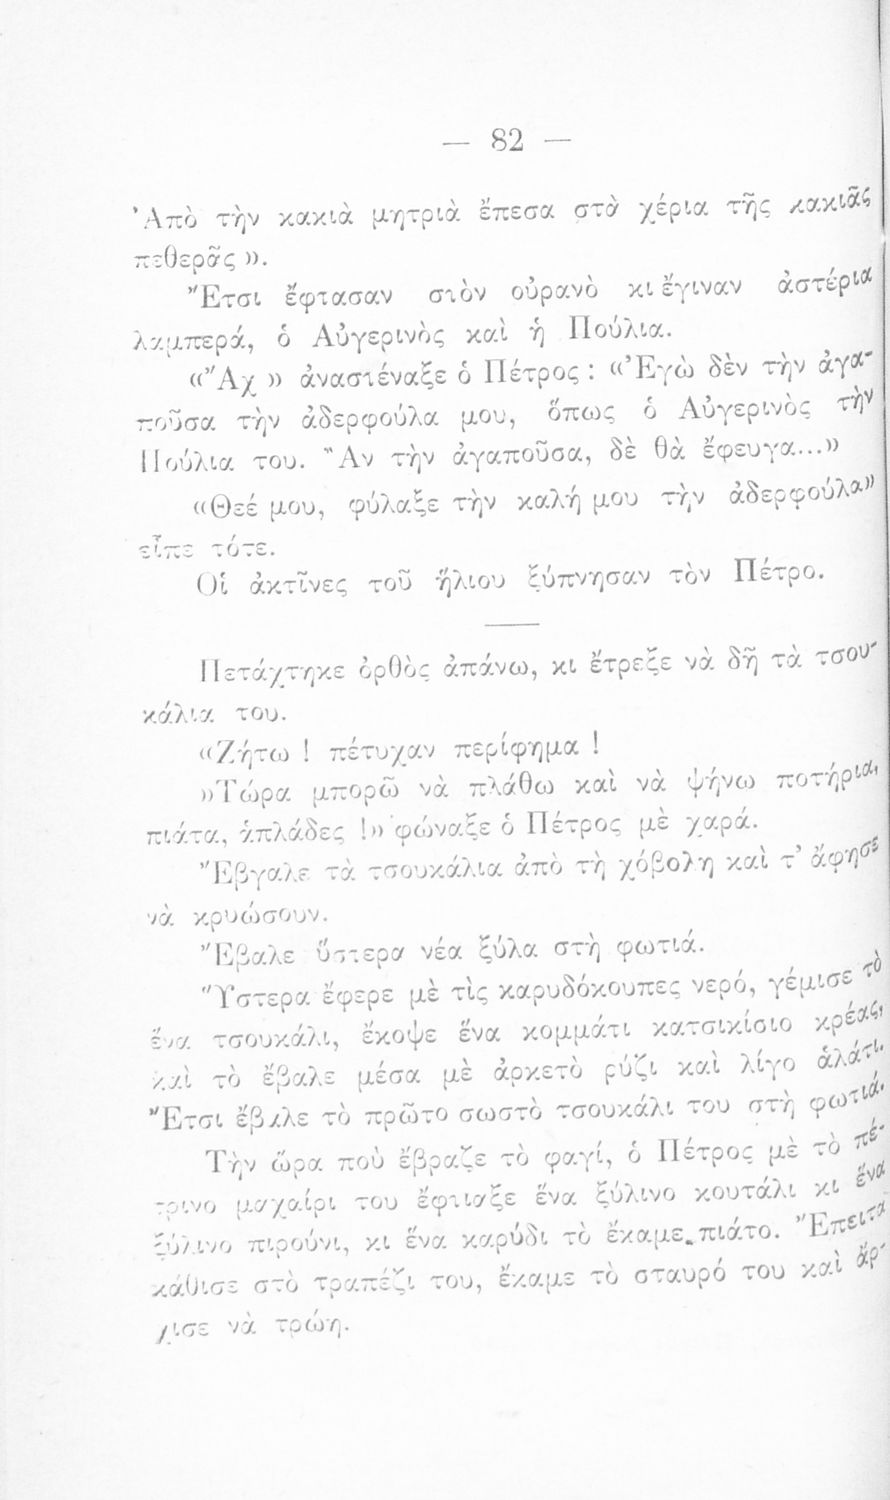 — 82 —
Ἀπὸ τὴν κακιὰ μητριὰ ἔπεσα στὰ χέρια τῆς κακιᾶς
πεθερᾶς».
Ἔτσι ἔφτασαν στὸν οὐρανὸ κι ἔγιναν ἀστέρια
λαμπερά, ὁ Αὐγερινὸς καὶ ἡ Πούλια.
«Ἄχ» ἀναστέναξε ὁ Πέτρος: «Ἐγὼ δὲν τὴν ἀγα-
ποῦσα τὴν ἀδερφούλα μου, ὅπως ὁ Αὐγερινὸς τὴν
Πούλια του. Ἂν τὴν ἀγαποῦσα, δὲ θὰ ἔφευγα...»
«Θεέ μου, φύλαξε τὴν καλή μου τὴν ἀδερφούλα»
εἶπε τότε.
Οἱ ἀκτῖνες τοῦ ἥλιου ξύπνησαν τὸν Πέτρο.
Πετάχτηκε ὀρθὸς ἀπάνω, κι ἔτρεξε νὰ δῆ τὰ τσου-
κάλια του.
«Ζήτω! πέτυχαν περίφημα!
»Τώρα μπορῶ νὰ πλάθω καὶ νὰ ψήνω ποτήρια,
πιάτα, ἁπλάδες!» φώναξε ὁ Πέτρος μὲ χαρά.
Ἔβγαλε τὰ τσουκάλια ἀπὸ τὴ χόβολη καὶ τ’ ἄφησε
νὰ κρυώσουν.
Ἔβαλε ὕστερα νέα ξύλα στὴ φωτιά.
Ὕστερα ἔφερε μὲ τὶς καρυδόκουπες νερό, γέμισε τὸ
ἕνα τσουκάλι, ἔκοψε ἕνα κομμάτι κατσικίσιο κρέας,
καὶ τὸ ἔβαλε μέσα μὲ ἀρκετὸ ρύζι καὶ λίγο ἁλάτι.
Ἔτσι ἔβαλε τὸ πρῶτο σωστὸ τσουκάλι του στὴ φωτιά.
Τὴν ὥρα ποὺ ἔβραζε τὸ φαγί, ὁ Πέτρος μὲ τὸ πέ-
τρινο μαχαίρι του ἔφτιαξε ἕνα ξύλινο κουτάλι κι ἕνα
ξύλινο πιρούνι, κι ἕνα καρύδι τὸ ἔκαμε πιάτο. Ἔπειτα
κάθισε στὸ τραπέζι του, ἔκαμε τὸ σταυρό του καὶ ἄρ-
χισε νὰ τρώη.